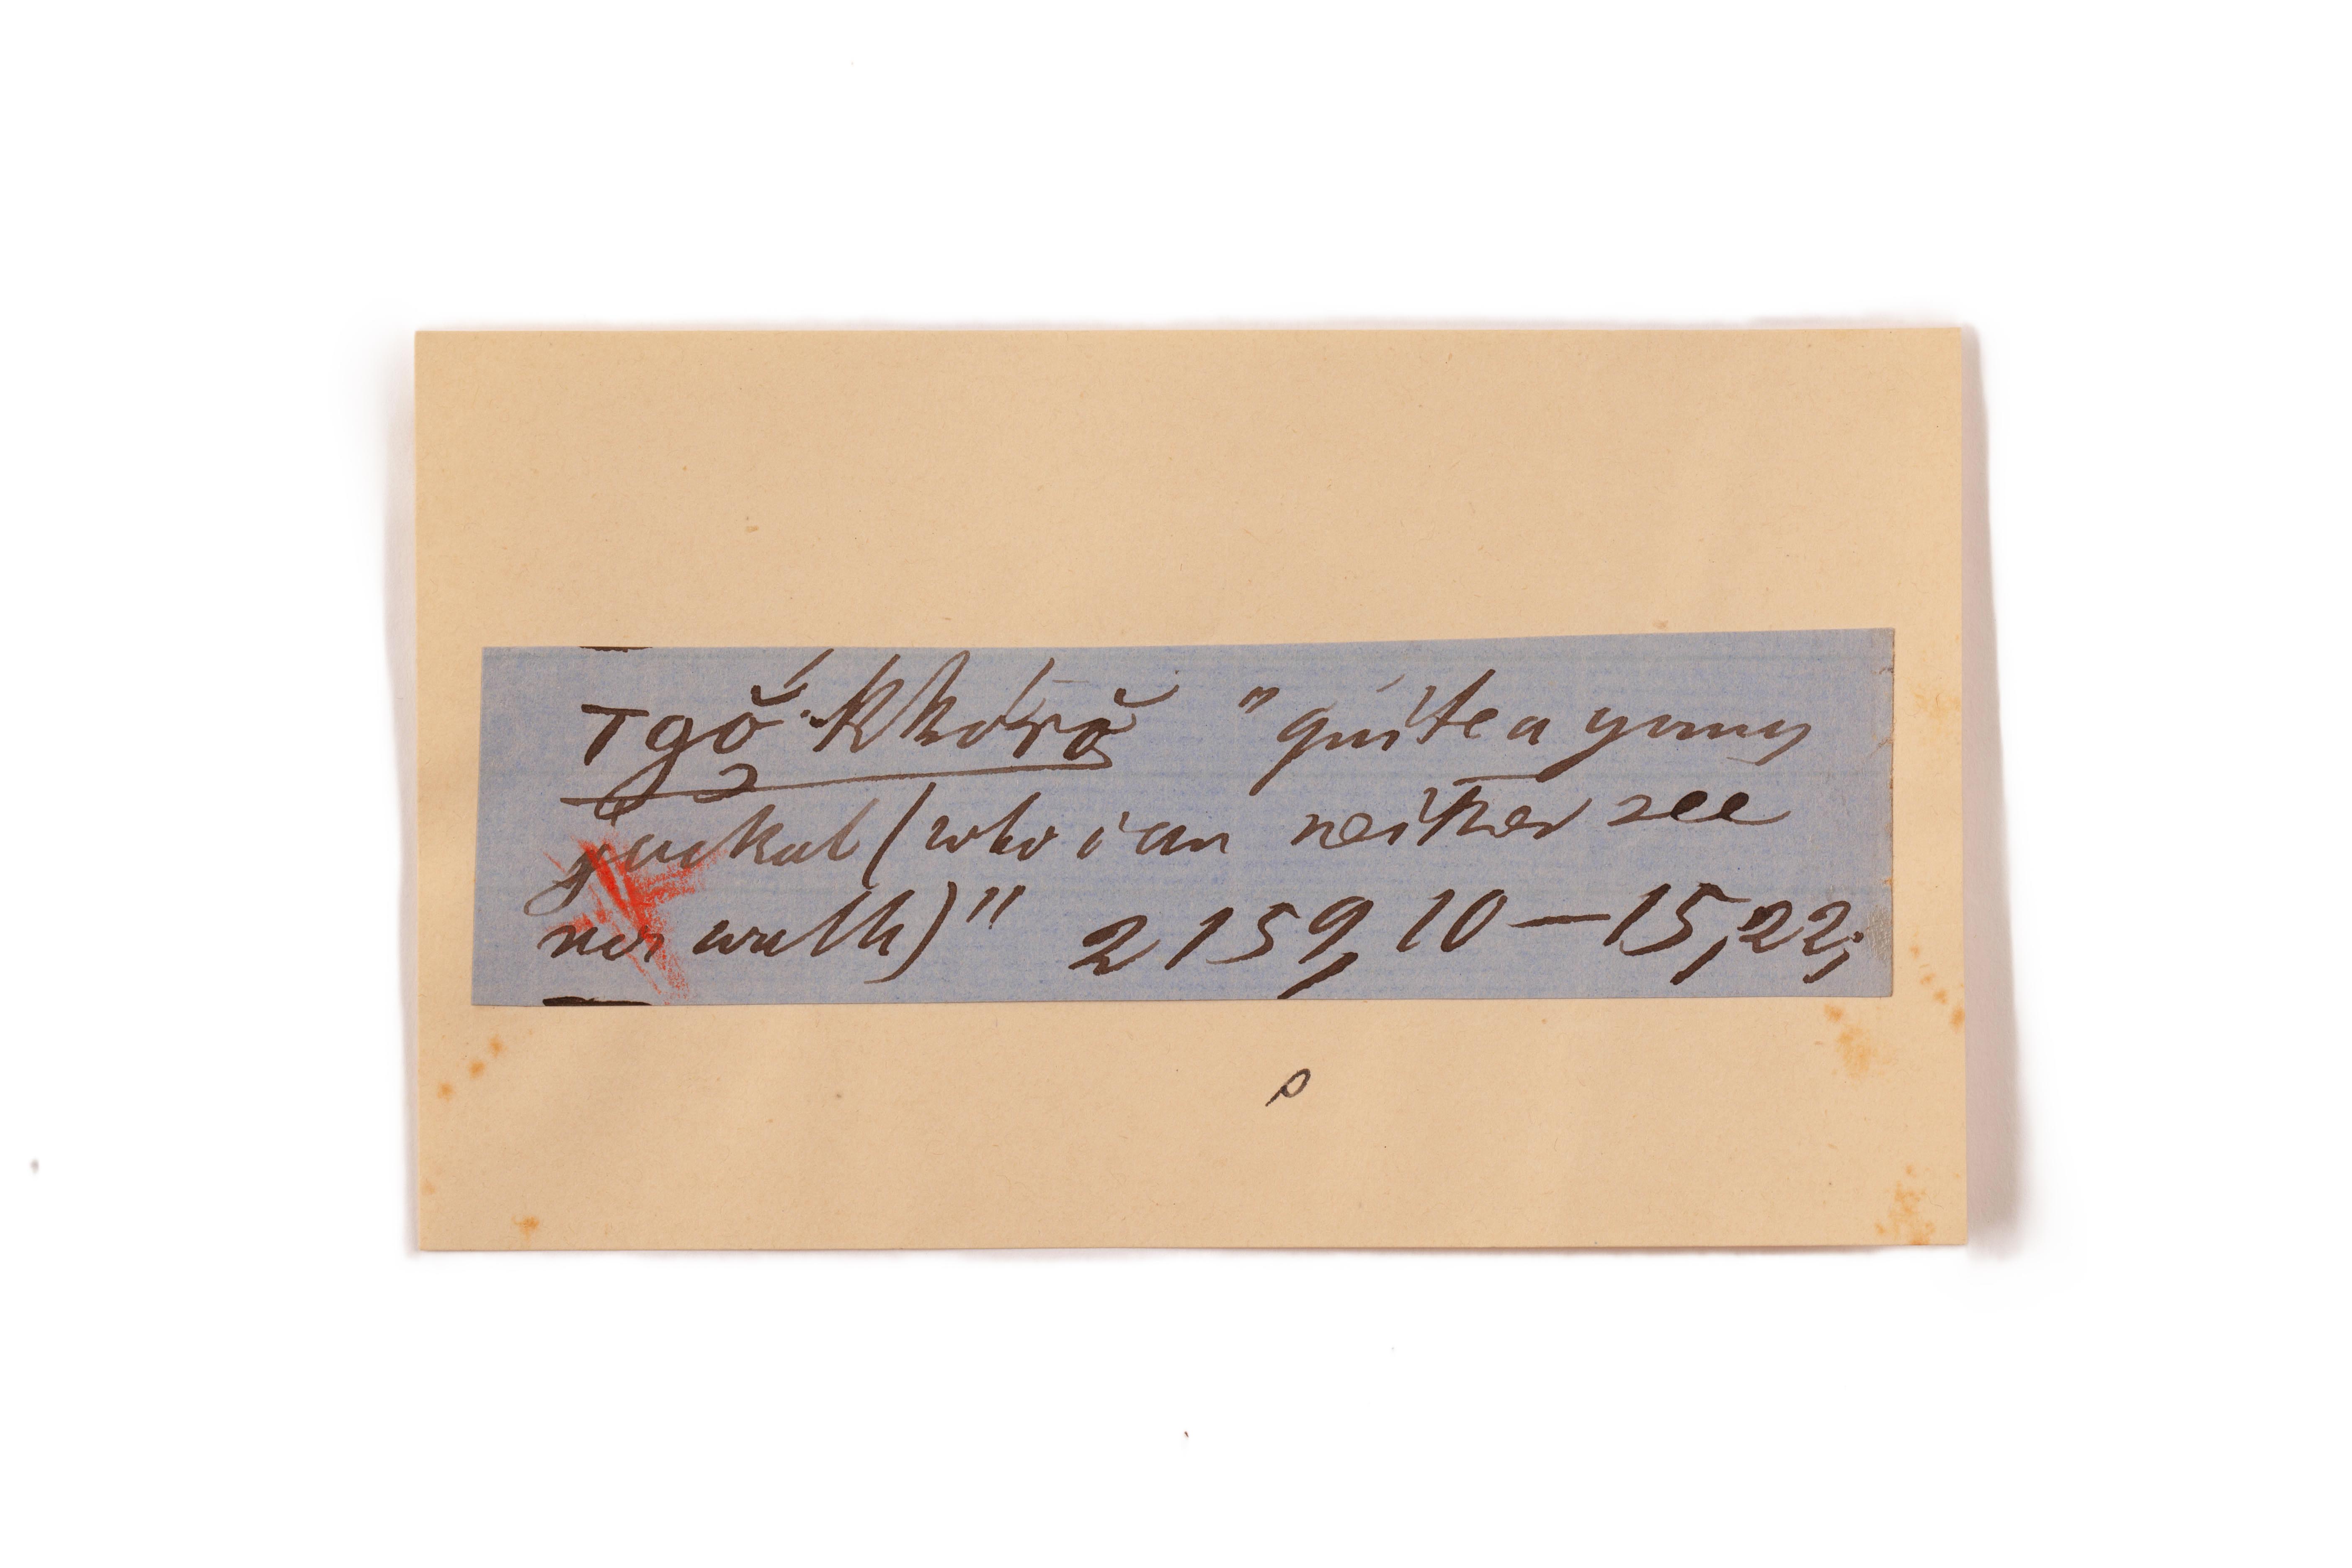 Tgŏ́ Kkórŏ "quite a young
jackal (who can neither see
nor walk)" 2159, 10—15, 22;